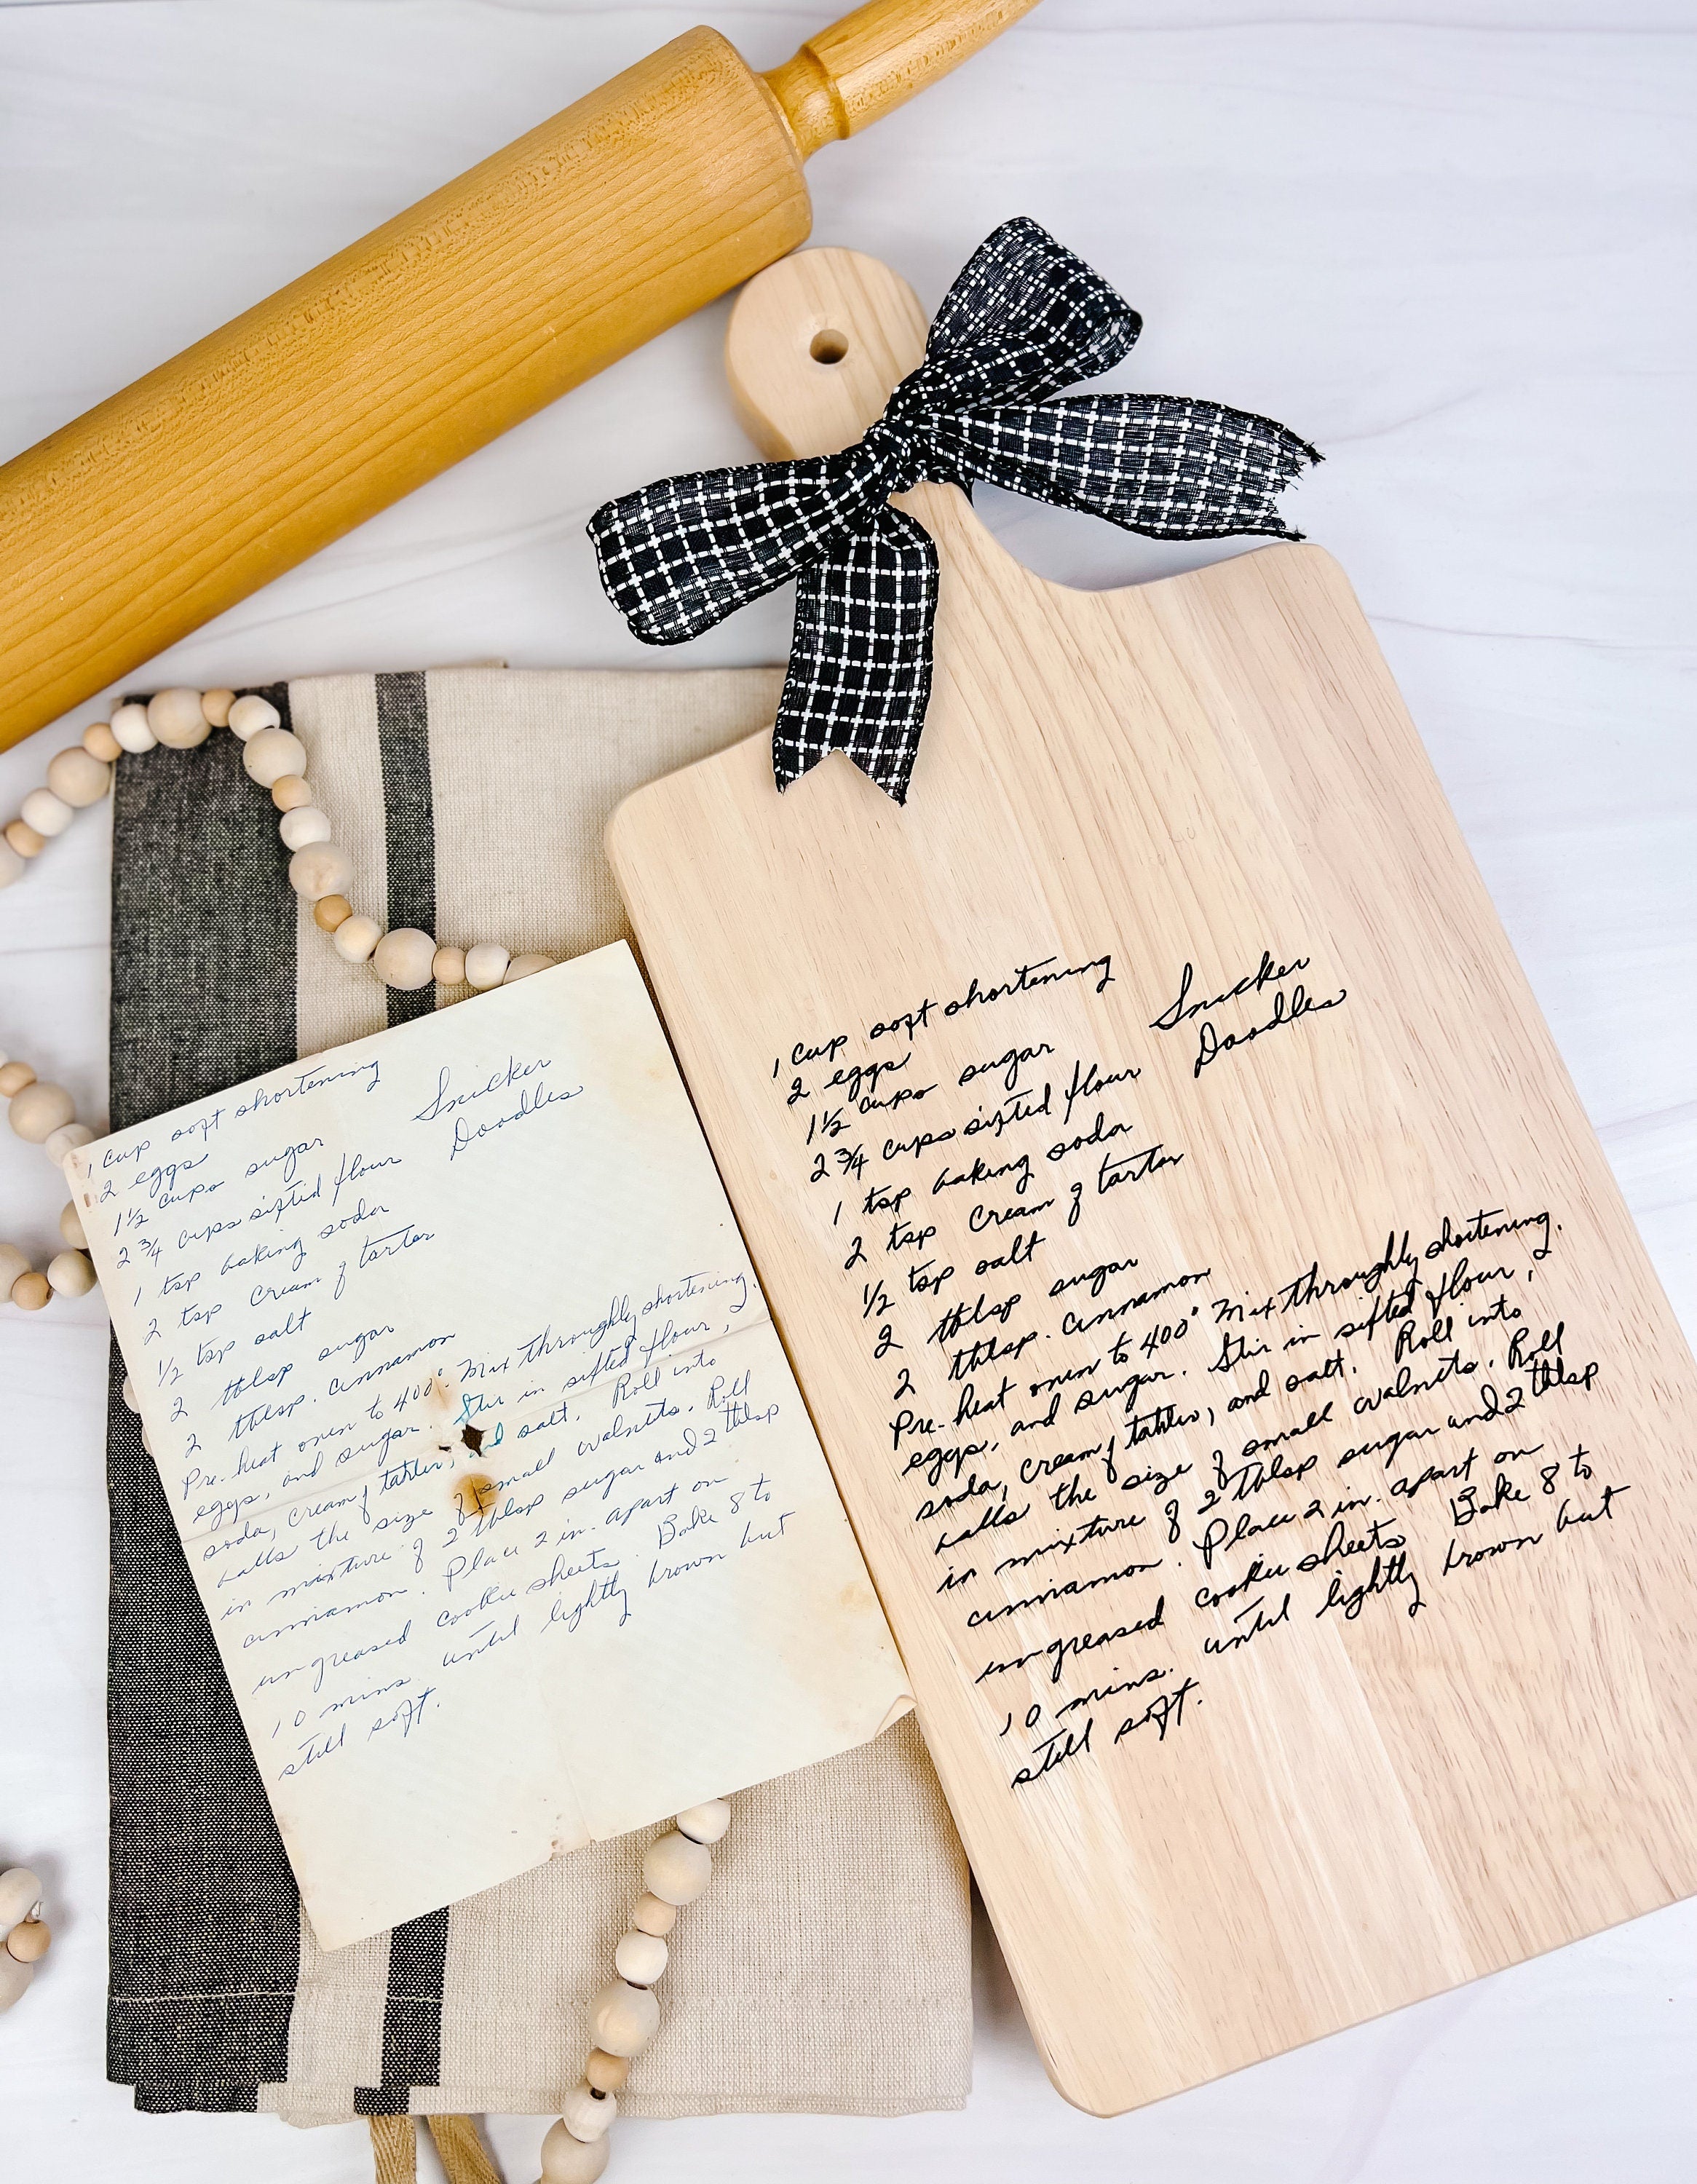 1 cup soft shortening
Snicker
Doodles
2 eggs
1½ cups sugar
2 ¾ cups sifted flour
1 tsp baking soda
2 tsp Cream of tartar
½ tsp salt
2 tblsp sugar
2 tblsp. cinnamon
Pre-heat oven to 400°. Mix throughly shortening,
eggs, and sugar. Stir in sifted flour,
soda, cream of tarter, and salt. Roll into
balls the size of small walnuts. Roll
in mixture of 2 tblsp sugar and 2 tblsp
cinnamon. Place 2 in. apart on
ungreased cookie sheets. Bake 8 to
10 mins. until lightly brown but
still soft.
1 cup soft shortening
Snicker
Doodles
2 eggs
1½ cups sugar
2 ¾ cups sifted flour
1 tsp baking soda
2 tsp Cream of tartar
½ tsp salt
2 tblsp sugar
2 tblsp. cinnamon
Pre-heat oven to 400° Mix throughly shortening,
eggs, and sugar. Stir in sifted flour,
soda, cream of tarter, and salt. Roll into
balls the size of small walnuts. Roll
in mixture of 2 tblsp sugar and 2 tblsp
cinnamon. Place 2 in. apart on
ungreased cookie sheets Bake 8 to
10 mins. until lightly brown but
still soft.